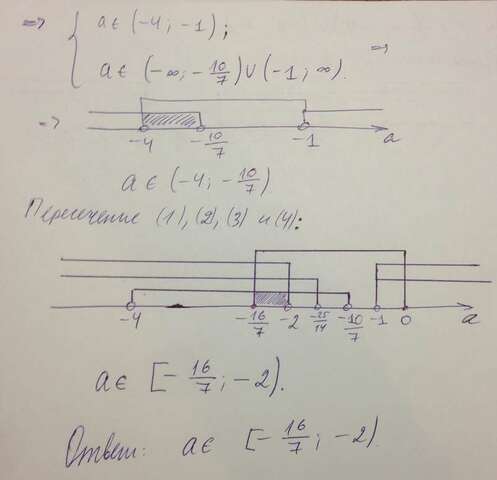 => { a ∈ (-4; -1);
a ∈ (-∞; -10/7) ∪ (-1; ∞). =>
=> -4 -10/7 -1 a
a ∈ (-4; -10/7)
Пересечение (1), (2), (3) и (4):
-4 -16/7 -2 -25/14 -10/7 -1 0 a
a ∈ [-16/7; -2).
Ответ: a ∈ [-16/7; -2).